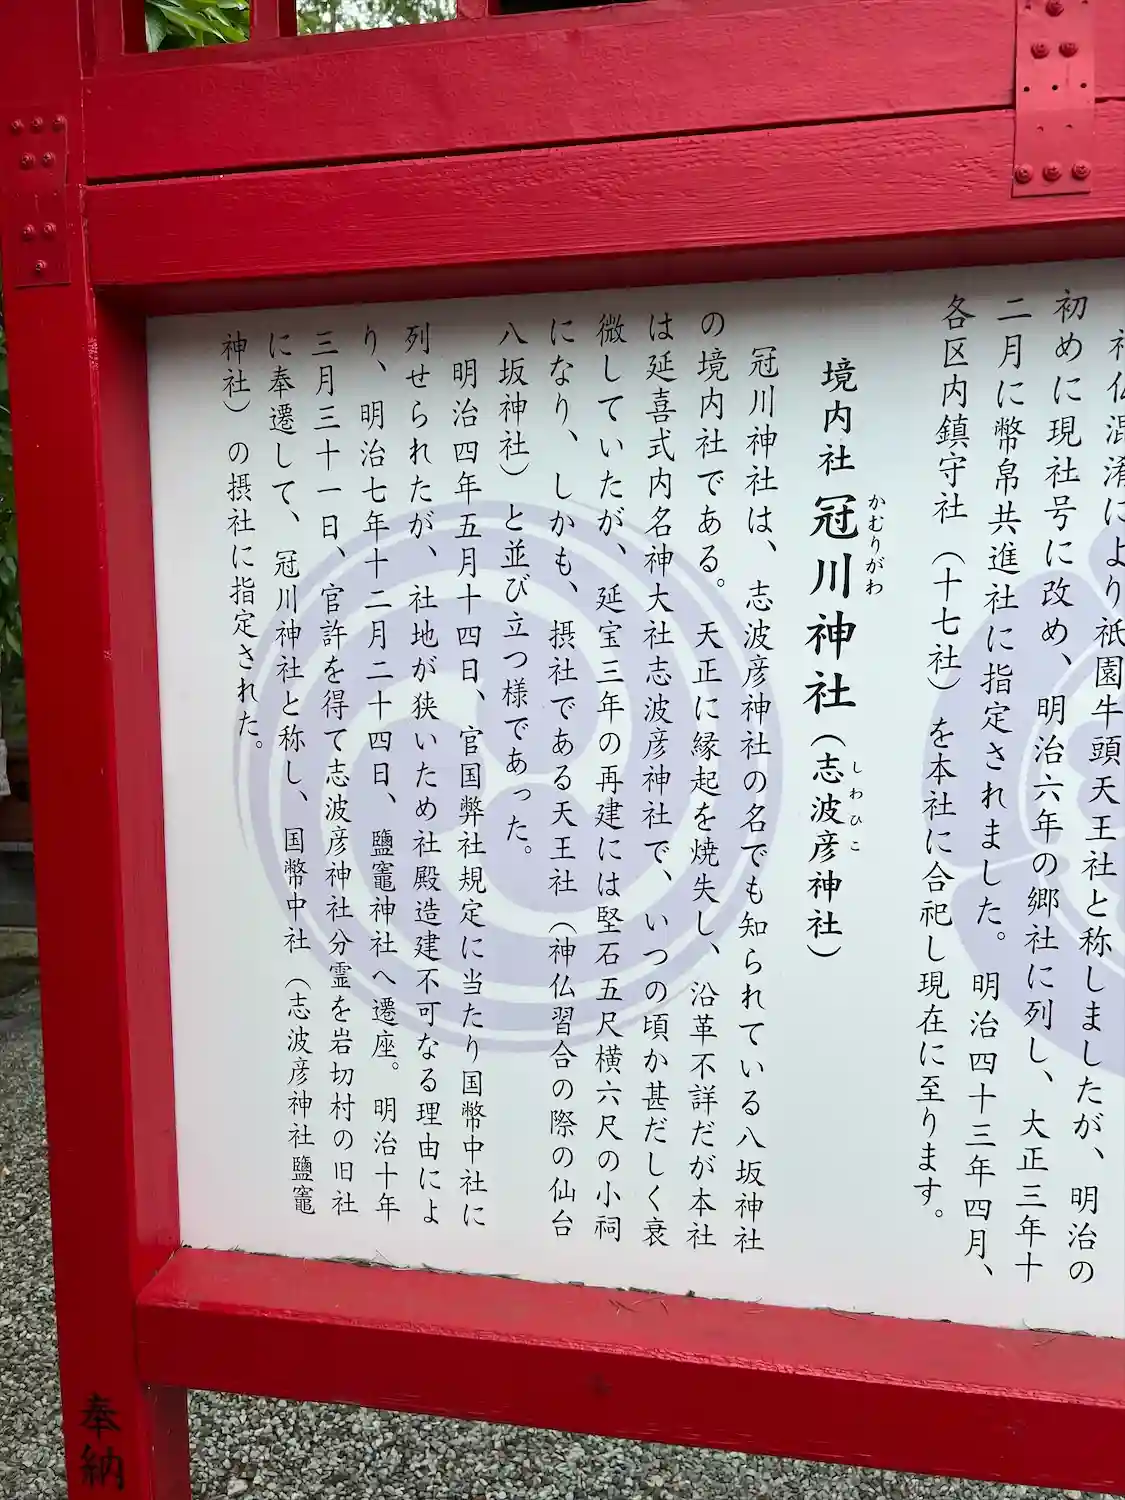 神仏混淆により祇園牛頭天王社と称しましたが、明治の
初めに現社号に改め、明治六年の郷社に列し、大正三年十
二月に幣帛共進社に指定されました。明治四十三年四月、
各区内鎮守社（十七社）を本社に合祀し現在に至ります。
境内社 冠川神社（志波彦神社）
かむりがわ
しわひこ
冠川神社は、志波彦神社の名でも知られている八坂神社
の境内社である。天正に縁起を焼失し、沿革不詳だが本社
は延喜式内名神大社志波彦神社で、いつの頃か甚だしく衰
微していたが、延宝三年の再建には堅石五尺横六尺の小祠
になり、しかも、摂社である天王社（神仏習合の際の仙台
八坂神社）と並び立つ様であった。
明治四年五月十四日、官国弊社規定に当たり国幣中社に
列せられたが、社地が狭いため社殿造建不可なる理由によ
り、明治七年十二月二十四日、鹽竈神社へ遷座。明治十年
三月三十一日、官許を得て志波彦神社分霊を岩切村の旧社
に奉遷して、冠川神社と称し、国幣中社（志波彦神社鹽竈
神社）の摂社に指定された。
奉納